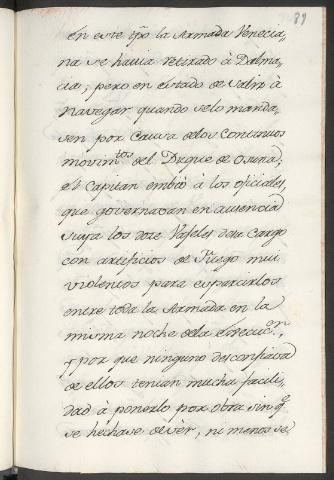 89
En este tpo la Armada Venecia,
na se havia retirado à Dalma,
cia, pero en estado de salir à
navegar quando selo manda,
sen por causa delos Continuos
movimtos del Duque de Osuna;
el Capitan embió à los oficiales,
que governavan en ausencia
suya los doze Vaseles de su Cargo
con artificios de Fuego mui
violentos para esparcirlos
entre toda la Armada en la
misma noche dela execucon,
y por que ninguno desconfiava
de ellos tenian mucha facili,
dad à ponerlo por obra sin qe
se hechase de vèr, ni menos se